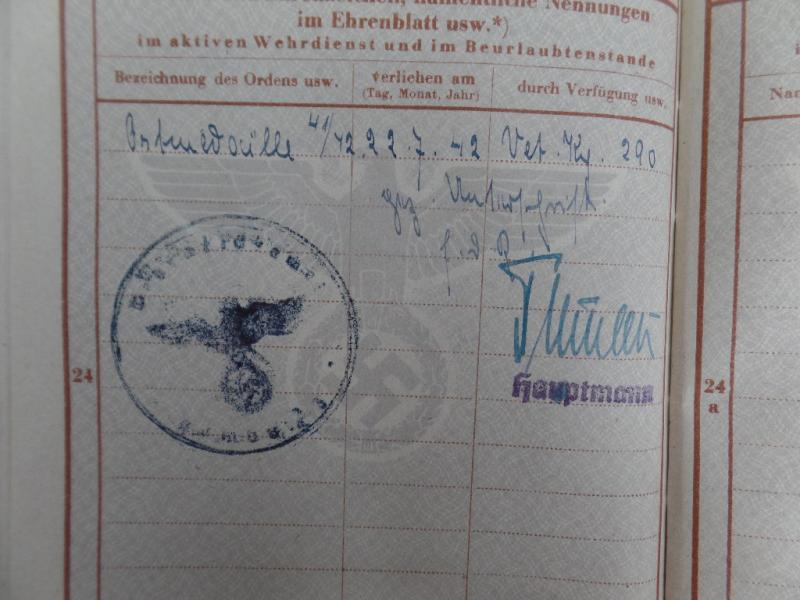 namentliche Nennungen
im Ehrenblatt usw.*)
im aktiven Wehrdienst und im Beurlaubtenstande
Bezeichnung des Ordens usw.
verliehen am
(Tag, Monat, Jahr)
durch Verfügung usw.
Na
Ostmedaille 41/42 22.7.42 Vet. Kp. 290
gez. Unterschrift.
f.d.R.
Hauptmann
24
24
a